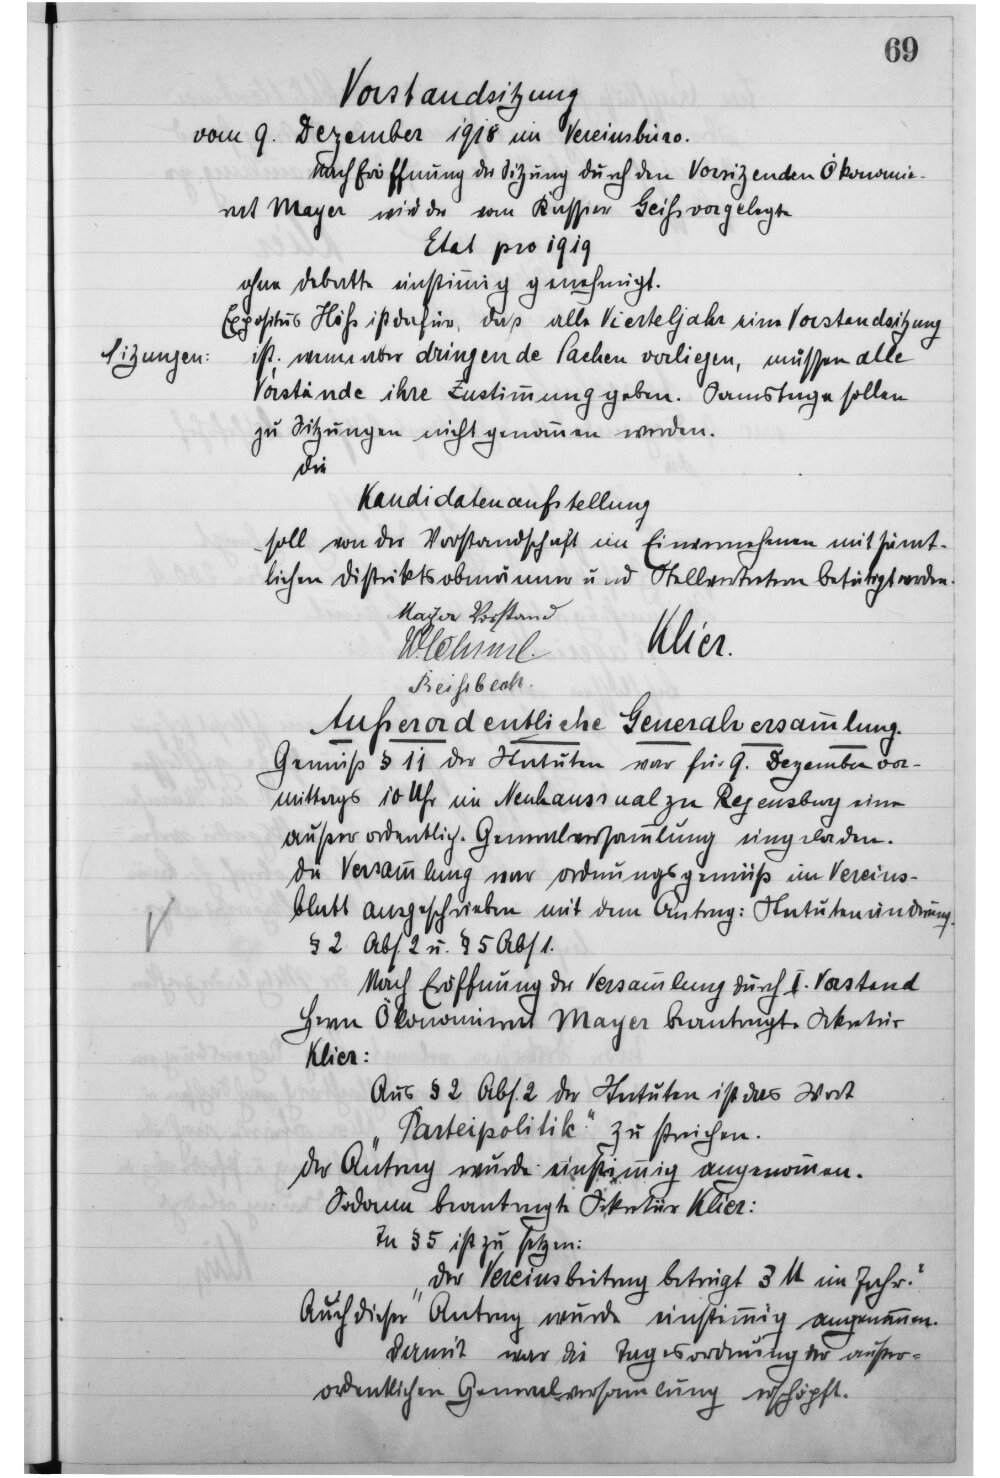 69
Vorstandsitzung
vom 9. Dezember 1918 im Vereinsbüro.
Nach Eröffnung der Sitzung durch den Vorsizenden Ökonomie-
rat Mayer wird der vom Kassier Geiß vorgelegte
Etat pro 1919
ohne Debatte einstim̄ig genehmigt.
Expositus Höß ist dafür, daß alle Vierteljahr eine Vorstandsitzung
Sizungen: ist. wenn aber dringende Sachen vorliegen, müssen alle
Vorstände ihre Zustim̄ung geben. Samstage sollen
zu Sitzungen nicht genom̄en werden.
Die
Kandidatenaufstellung
soll von der Vorstandschaft im Einvernehmen mit sämt-
lichen Distriktsobmänner und Stellvertretern betätigt werden.
Mayer Vorstand
Klier.
Beißbeck.
Außerordentliche Generalversam̄lung.
Gemäß § 11 der Statuten war für 9. Dezember vor-
mittags 10 Uhr im Neuhaussaal zu Regensburg eine
außerordentlich. Generalversam̄lung eingeladen.
Die Versam̄lung war ordnungsgemäß im Vereins-
blatt ausgeschrieben mit dem Antrag: Statutenänderung
§ 2 Abs. 2 u. § 5 Abs 1.
Nach Eröffnung der Versam̄lung durch I. Vorstand
Herrn Ökonomierat Mayer beantragte Sekretär
Klier:
Aus § 2 Abs. 2 der Statuten ist das Wort
„Parteipolitik" zu streichen.
Der Antrag wurde einstim̄ig angenom̄en.
Sodann beantragte Sekretär Klier:
In § 5 ist zu setzen:
„Der Vereinsbeitrag beträgt 3 M im Jahr."
Auch dieser Antrag wurde einstim̄ig angenom̄en.
Damit war die Tagesordnung der außer-
ordentlichen Generalversam̄lung erschöpft.